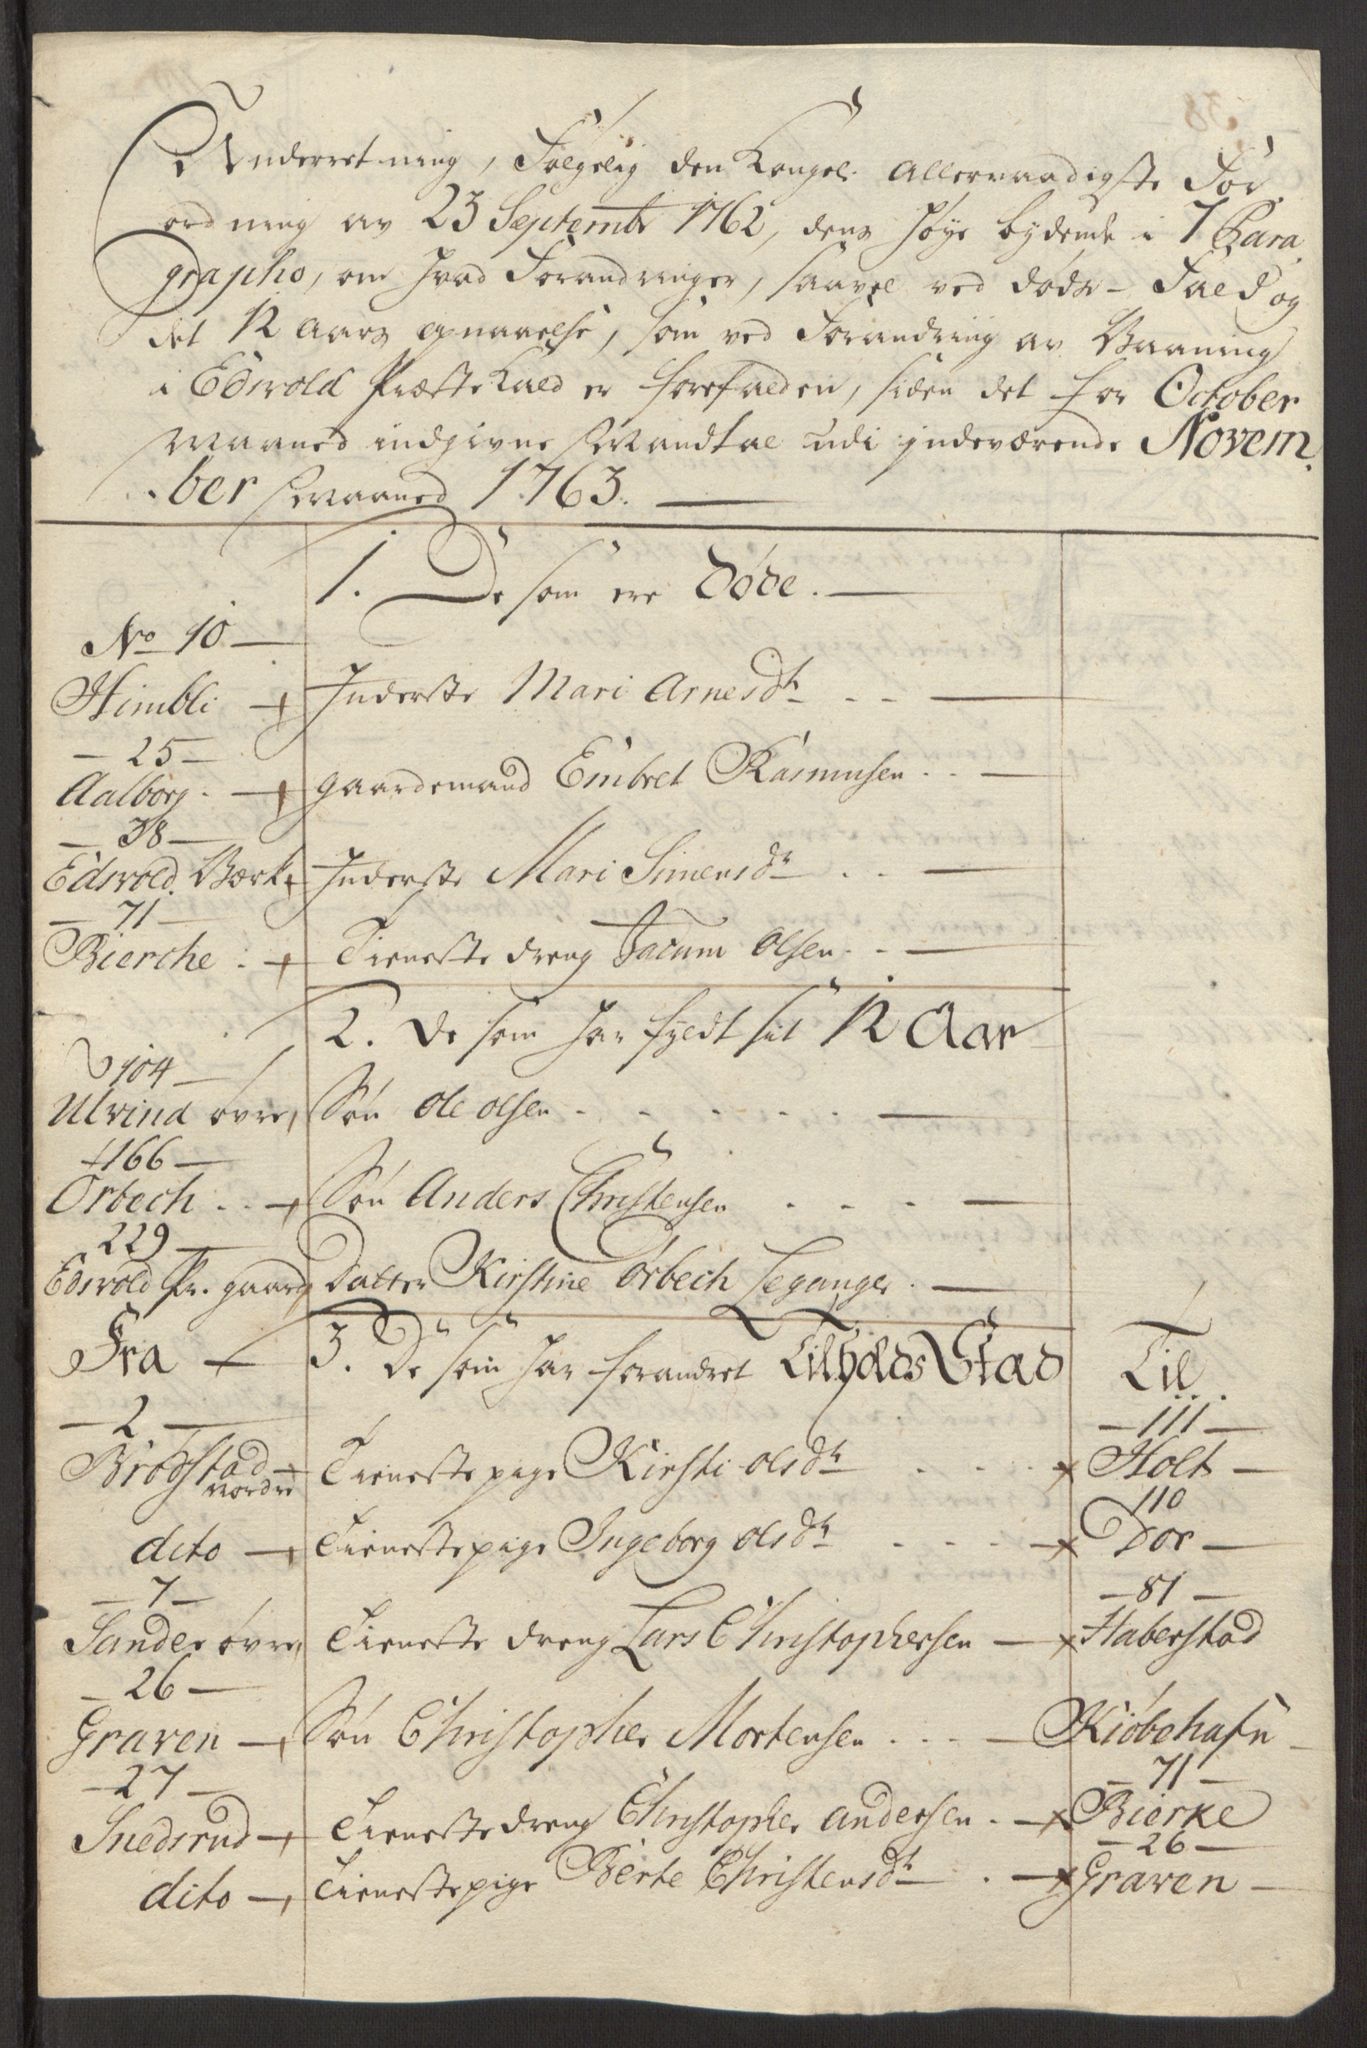 Underretning, Følgelig den Kongel: Allernaadigste For
ordning av 23 Septembr 1762, dens høye bydende i 7 Para
grapho, om hvad Forandringer, saavel ved døds-Fald og
det 12 Aars opnaaelse, som ved Forandring av Vaaning
i Edsvold Præste Kald er forefalden, siden det for October
Maaned indgivne Mandtal udi indeværende Novem
ber Maaned 1763.
1. De som ere Døde.
No 10
Himbli Inderste Mari Arnesdtr
25
Aalborg Gaardemand Embret Rasmusen
38
Edsvold Værk Inderste Mari Simensdr
71
Bierche Tieneste dreng Jacum Olsen
2. De som har fyldt sit 12 Aar
104
Ulvind øvre Søn Ole Olsen
166
Ørbech Søn Anders Christensen
229
Edsvold Pr. gaard Datter Kirstine Ørbech Leganger
Fra 3. De som har forandret Tilholds Stad Til
2 111
Brodstad nordre Tienestepige Kirsti Olsdtr Holt
110
dito Tienestepige Ingeborg Olsdtr Dor
7 81
Sander øvre Tieneste dreng Lars Christophersen Haberstad
26
Graven Søn Christopher Mortensen Kiøbehafn
27 71
Snedsrud Tienestedreng Christopher Andersen Bierke
26
dito Tienestepige Berte Christensdtr Graven